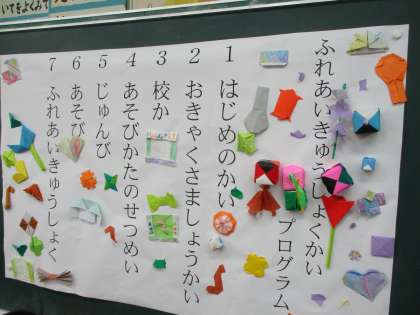 ふれあいきゅうしょくかい
プログラム
1 はじめのかい
2 おきゃくさましょうかい
3 校か
4 あそびかたのせつめい
5 じゅんび
6 あそび
7 ふれあいきゅうしょく